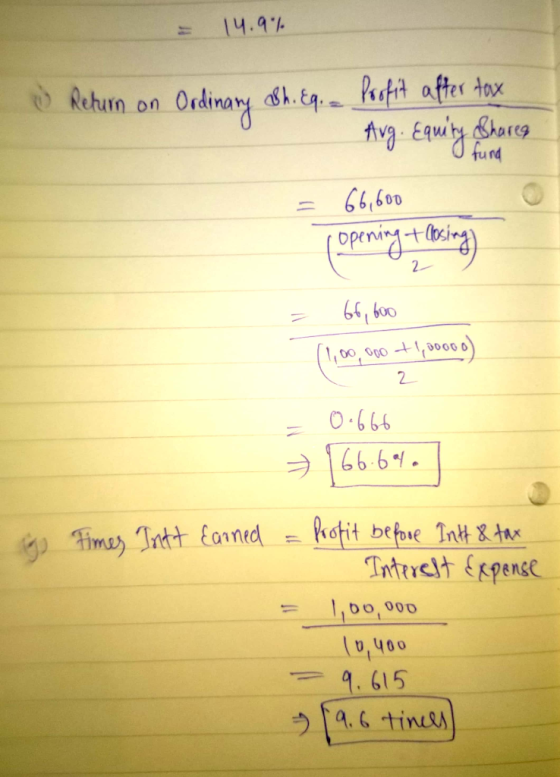 = 14.9%
i) Return on Ordinary Sh. Eq. = Profit after tax
Avg. Equity Shares
fund
= 66,600
(opening + Closing)
2
= 66,600
(1,00,000 + 1,00000)
2
= 0.666
⇒ 66.6%.
j) Times Intt Earned = Profit before Intt & tax
Interest Expense
= 1,00,000
10,400
= 9.615
⇒ 9.6 times